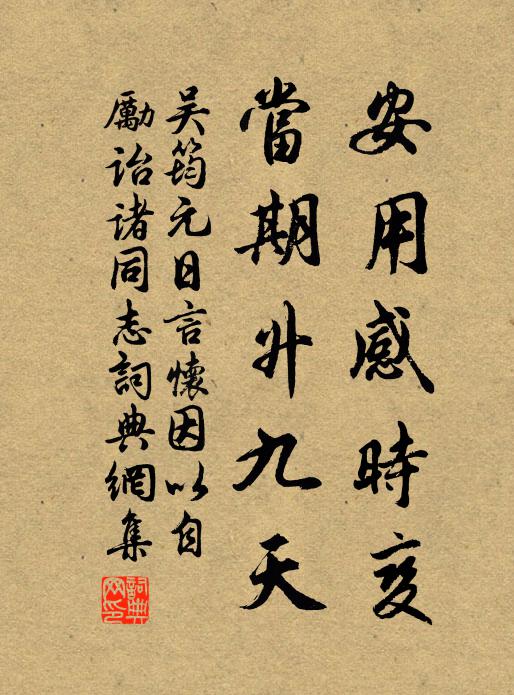 安用感時变
當期升九天
吴筠元日言懷因以自
勵詒诸同志詞典網集
詞典网印